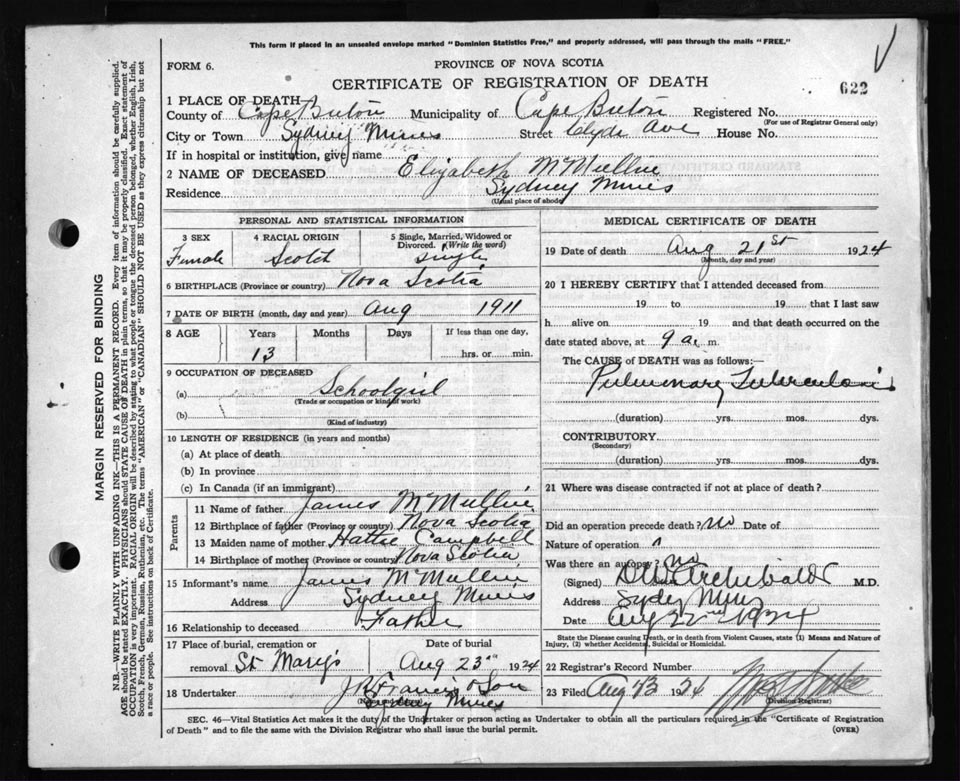 This form if placed in an unsealed envelope marked "Dominion Statistics Free," and properly addressed, will pass through the mails "FREE."
FORM 6.
PROVINCE OF NOVA SCOTIA
CERTIFICATE OF REGISTRATION OF DEATH
622
1 PLACE OF DEATH
County of Cape Breton Municipality of Cape Breton Registered No.
(For use of Registrar General only)
City or Town Sydney Mines Street Clyde Ave House No.
If in hospital or institution, give name
2 NAME OF DECEASED Elizabeth McMullin
Residence Sydney Mines
(Usual place of abode)
PERSONAL AND STATISTICAL INFORMATION
3 SEX Female
4 RACIAL ORIGIN Scotch
5 Single, Married, Widowed or Divorced. (Write the word) single
6 BIRTHPLACE (Province or country) Nova Scotia
7 DATE OF BIRTH (month, day and year) Aug 1911
8 AGE Years Months Days If less than one day,
13 hrs. or min.
9 OCCUPATION OF DECEASED
(a) Schoolgirl
(Trade or occupation or kind of work)
(b)
(Kind of industry)
10 LENGTH OF RESIDENCE (in years and months)
(a) At place of death
(b) In province
(c) In Canada (if an immigrant)
Parents
11 Name of father James McMullin
12 Birthplace of father (Province or country) Nova Scotia
13 Maiden name of mother Hattie Campbell
14 Birthplace of mother (Province or country) Nova Scotia
15 Informant's name James McMullin
Address Sydney Mines
16 Relationship to deceased Father
17 Place of burial, cremation or removal St Mary's
Date of burial Aug 23rd 1924
18 Undertaker J R Francis & Son
Sydney Mines
MEDICAL CERTIFICATE OF DEATH
19 Date of death Aug 21st 1924
(Month, day and year)
20 I HEREBY CERTIFY that I attended deceased from
19 to 19 that I last saw
h alive on 19 and that death occurred on
date stated above, at 9 a. m.
The CAUSE of DEATH was as follows:—
Pulmonary Tuberculosis
(duration) yrs. mos. dys.
CONTRIBUTORY
(Secondary)
(duration) yrs. mos. dys.
21 Where was disease contracted if not at place of death?
Did an operation precede death? no Date of
Nature of operation
Was there an autopsy? no
(Signed) Archibald M.D.
Address Sydney Mines
Date Aug 22nd 1924
State the Disease causing Death, or in death from Violent Causes, state (1) Means and Nature of
Injury, (2) whether Accidental, Suicidal or Homicidal.
22 Registrar's Record Number
23 Filed Aug 23 1924
(Division Registrar)
SEC. 46—Vital Statistics Act makes it the duty of the Undertaker or person acting as Undertaker to obtain all the particulars required in the "Certificate of Registration
of Death" and to file the same with the Division Registrar who shall issue the burial permit.
(OVER)
MARGIN RESERVED FOR BINDING
N.B.—WRITE PLAINLY WITH UNFADING INK—THIS IS A PERMANENT RECORD. Every item of information should be carefully supplied.
AGE should be stated EXACTLY. PHYSICIANS should STATE CAUSE OF DEATH in plain terms, so that it may be properly classified. Exact statement of
OCCUPATION is very important. RACIAL ORIGIN will be described by stating to what people or tongue the deceased person belonged, whether English, Irish,
Scotch, French, German, Russian, Ruthenian, etc. The terms "AMERICAN" or "CANADIAN" SHOULD NOT BE USED as they express citizenship but not
a race or people. See instructions on back of Certificate.